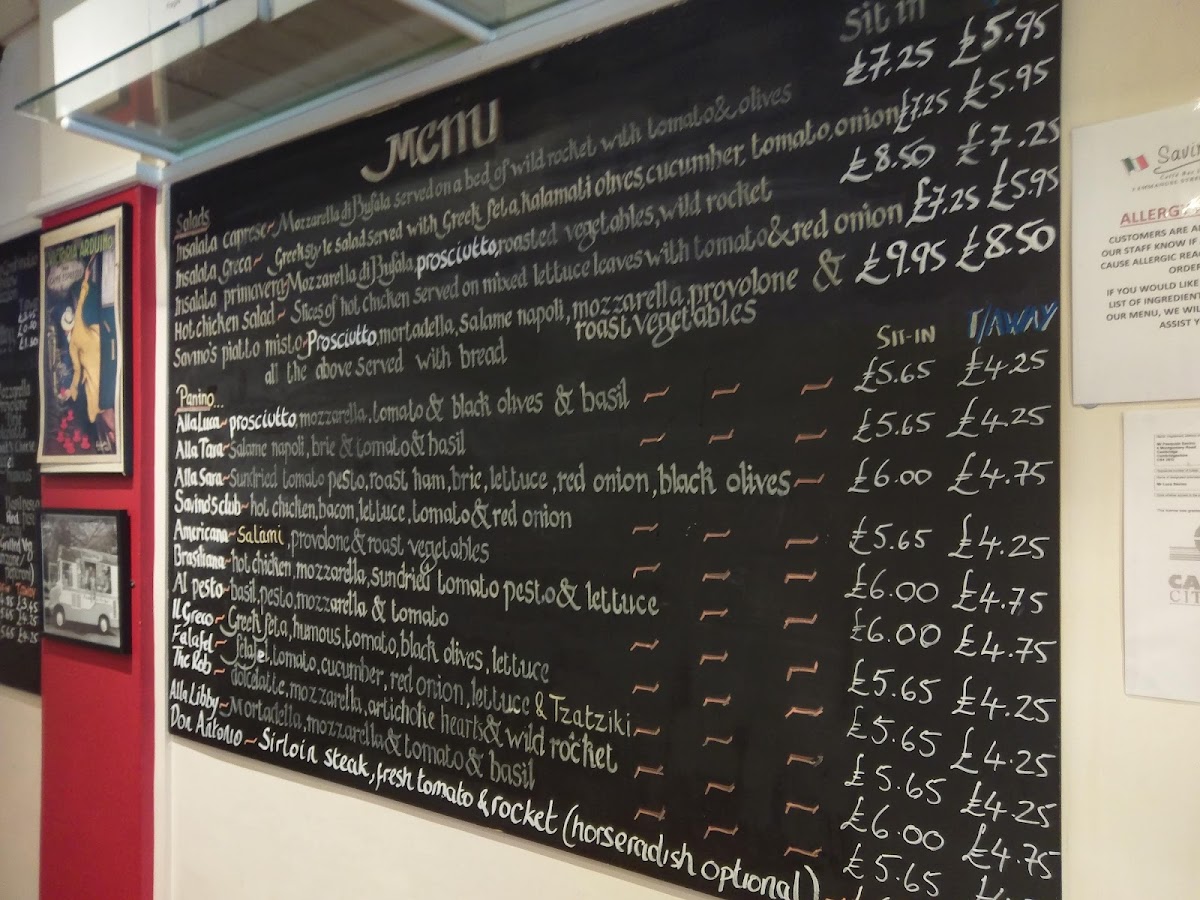 MENU
Sit in
Salads
Insalata caprese ~ Mozzarella di Bufala served on a bed of wild rocket with tomato & olives £7.25 £5.95
Insalata Greca ~ Greek style salad served with Greek feta, kalamati olives, cucumber, tomato, onion £7.25 £5.95
Insalata primavera ~ Mozzarella di Bufala, prosciutto, roasted vegetables, wild rocket £8.50 £7.25
Hot chicken salad ~ Slices of hot chicken served on mixed lettuce leaves with tomato & red onion £7.25 £5.95
Savino's piatto misto ~ Prosciutto, mortadella, salame napoli, mozzarella, provolone & £9.95 £8.50
roast vegetables
all the above served with bread
SIT-IN T/AWAY
Panino...
Alla Luca ~ prosciutto, mozzarella, tomato & black olives & basil ~ ~ ~ £5.65 £4.25
Alla Tara ~ Salame napoli, brie & tomato & basil ~ ~ ~ £5.65 £4.25
Alla Sara ~ Sundried tomato pesto, roast ham, brie, lettuce, red onion, black olives ~ £6.00 £4.75
Savino's club ~ hot chicken, bacon, lettuce, tomato & red onion ~ ~ £5.65 £4.25
Americana ~ Salami, provolone & roast vegetables ~ ~ ~ £6.00 £4.75
Brasiliana ~ hot chicken, mozzarella, sundried tomato pesto & lettuce ~ ~ £6.00 £4.75
Al pesto ~ basil, pesto, mozzarella & tomato ~ ~ ~ £5.65 £4.25
Il Greco ~ Greek feta, humous, tomato, black olives, lettuce ~ ~ ~ £5.65 £4.25
Falafel ~ felafel, tomato, cucumber, red onion, lettuce & Tzatziki ~ ~ ~ £5.65 £4.25
The Rob ~ dolcelatte, mozzarella, artichoke hearts & wild rocket ~ ~ ~ £6.00 £4.75
Alla Libby ~ Mortadella, mozzarella & tomato & basil ~ ~ ~ £5.65
Don Antonio ~ Sirloin steak, fresh tomato & rocket (horseradish optional) ~
ALLERG
CUSTOMERS ARE
OUR STAFF KNOW IF
CAUSE ALLERGIC REA
ORDER
IF YOU WOULD LIKE
LIST OF INGREDIENT
OUR MENU, WE WIL
ASSIST Y
CA
CIT